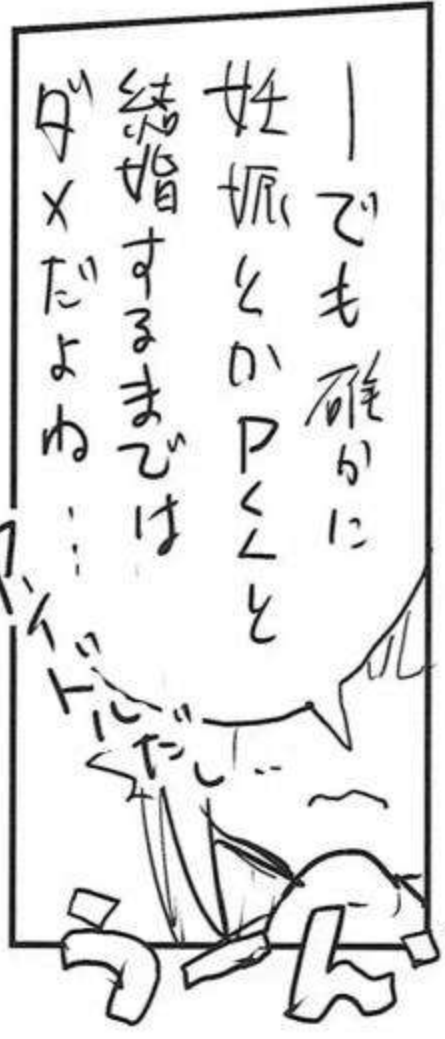 ーでも確かに
妊娠とかPくんと
結婚するまでは
ダメだよね…
アイドルだし…
うーん